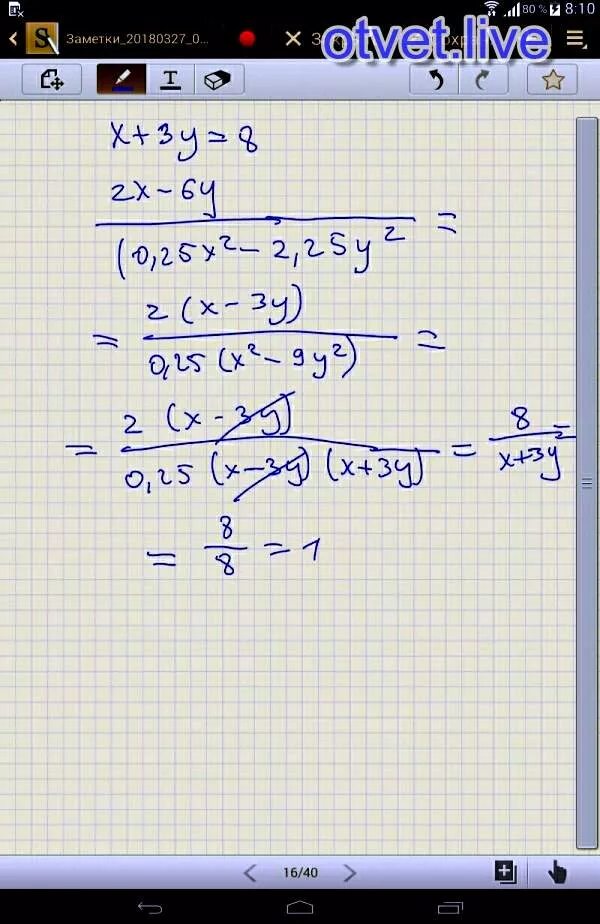 80 % 8:10
Заметки_20180327_0...
otvet.live
S
T
x + 3y = 8
2x - 6y
(0,25x² - 2,25y² =
= 2 (x - 3y)
0,25 (x² - 9y²) =
= 2 (x - 3y)
0,25 (x - 3y) (x + 3y) = 8
x + 3y =
= 8
8 = 1
16/40